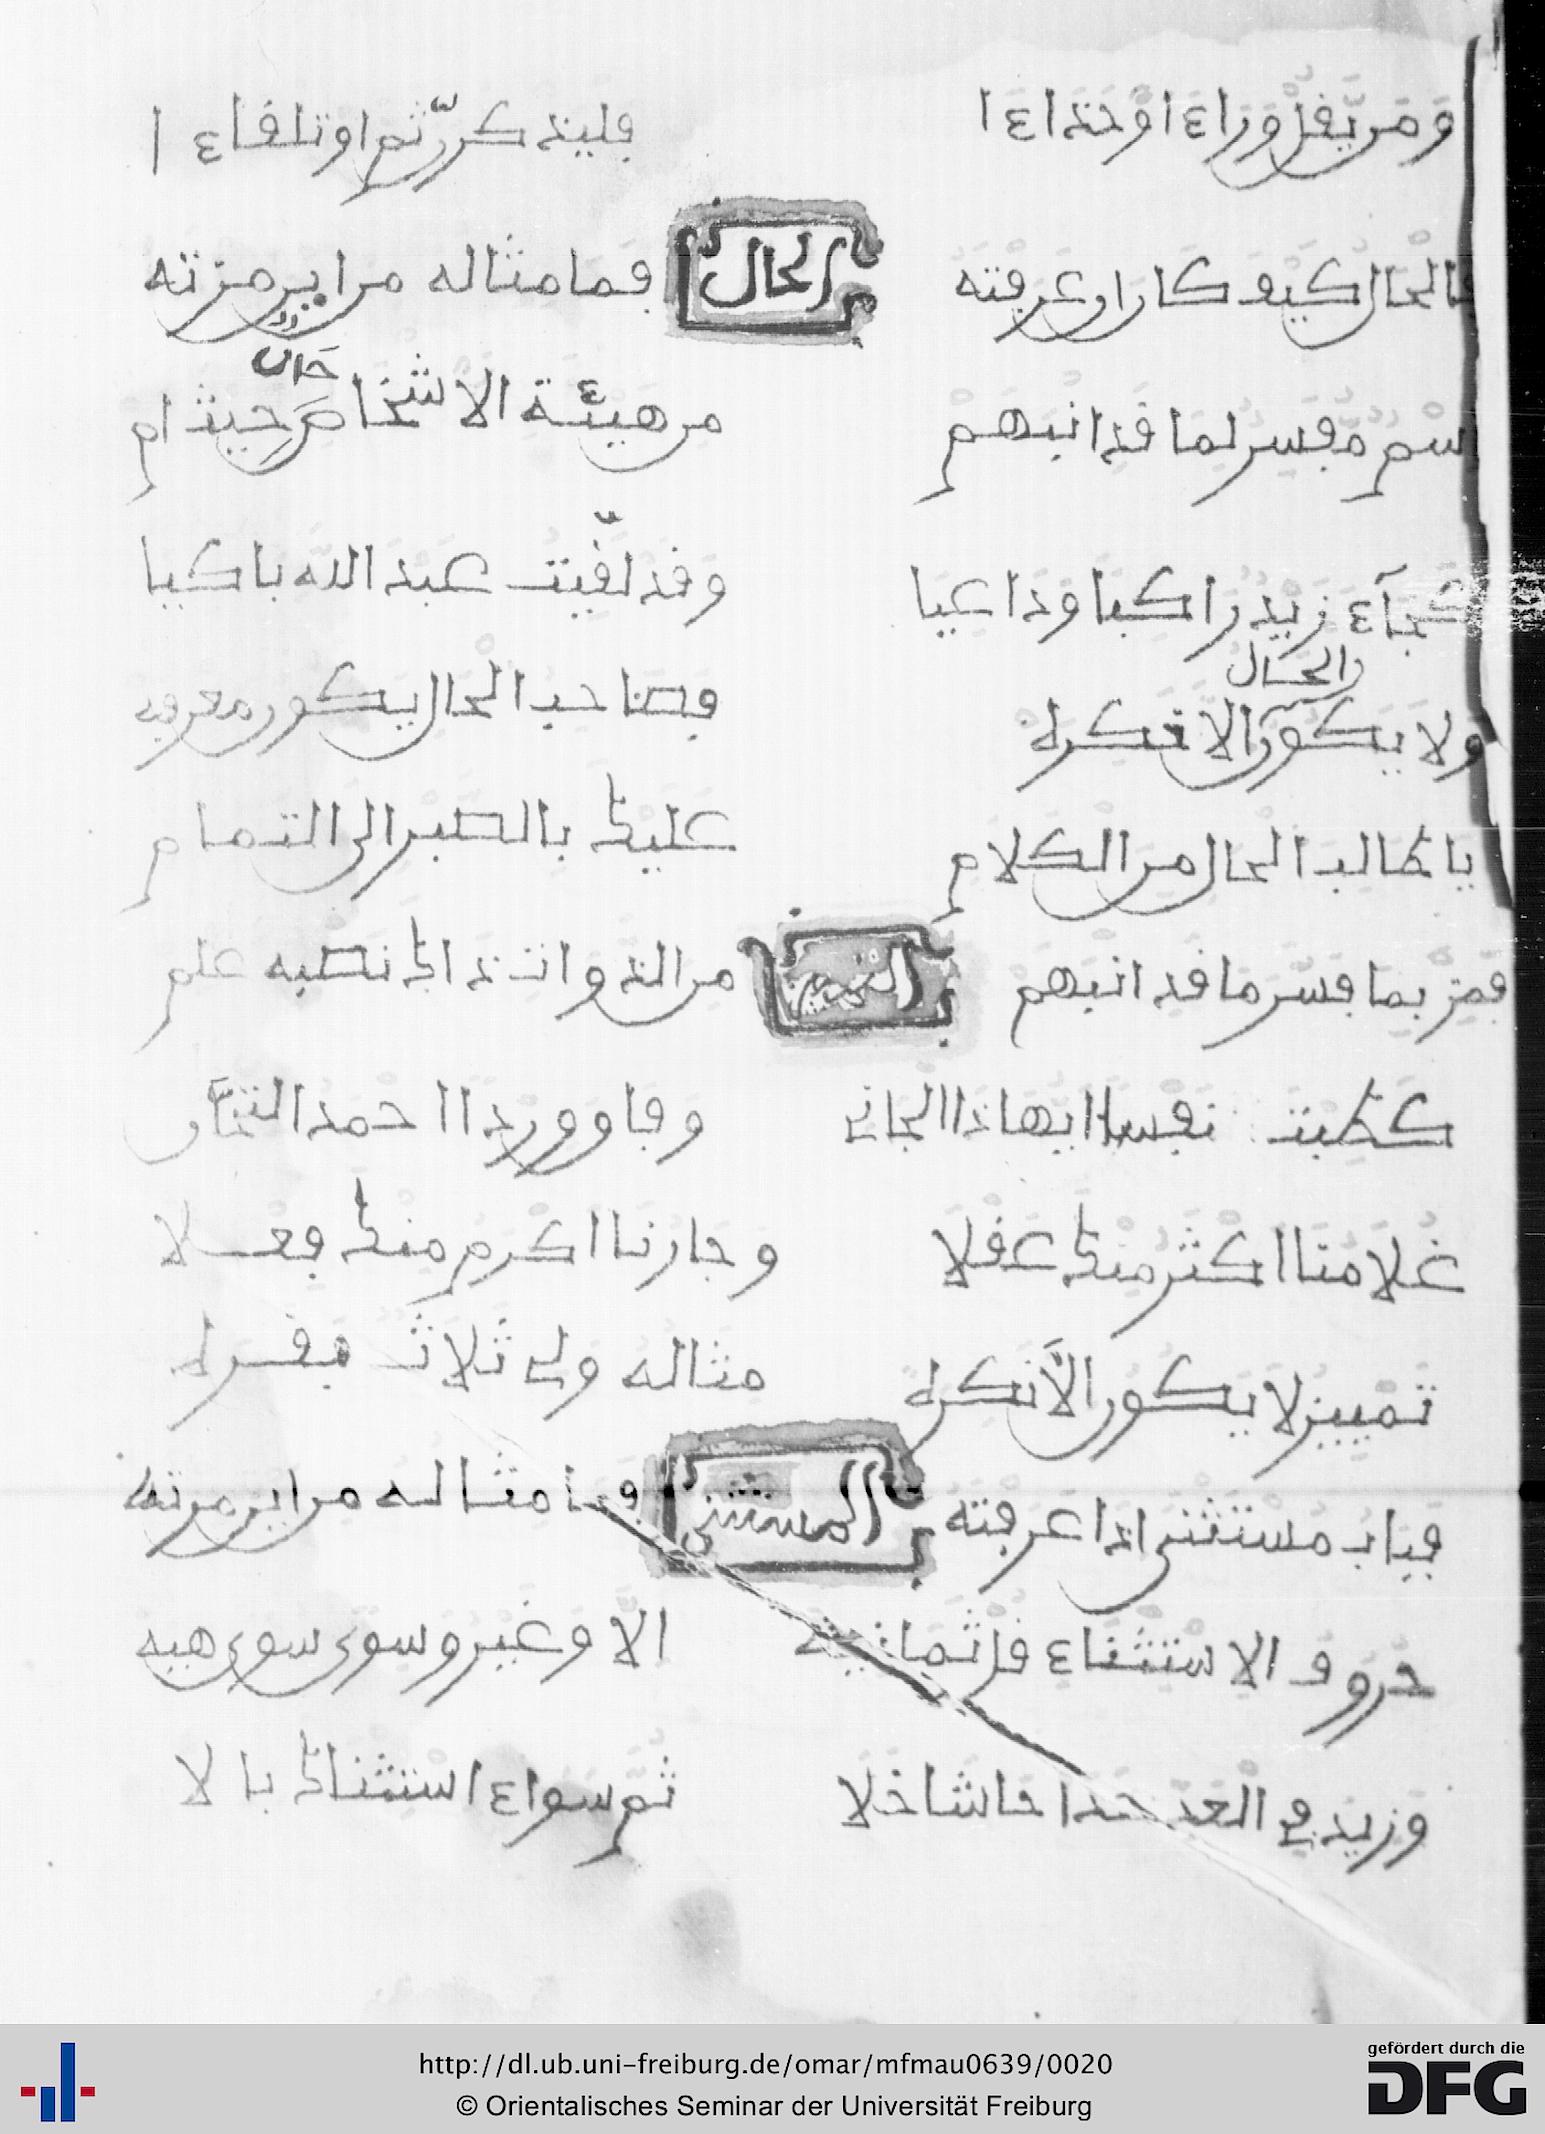 وَمَن يَّقُلْ وَرَاءَ اوْ حَذَاءَ ا فليذكرنّ ثم او تلقاء ا
فالحال كيف كان ان عرفته الحال فما مثاله من اين مزته
اسم مفسر لما قد انبهم من هيئة الاشخاص حيث ام
حال
كجآء زيد راكبا وداعيا وقد لقيت عبد الله باكيا
الحال
ولا يكون الا نكره فصاحب الحال يكون معرفه
يا طالب الحال من الكلام عليك بالصبر الى التمام
فمز بما فسر ما قد انبهم التمييز من الذوات ذاك نصبه علم
كطبت نفسا ايهاذا الجاني وفا وورد احمد التجان
غلامنا اكثر منك عقلا وجارنا اكرم منك فعلا
تمييز لا يكون الا نكره مثاله ولي ثلاث بقره
فباب مستثنى اذا عرفته المستثنى فما مثاله من اين مزته
حروف الاستثناء قل ثمانيه الا وغير وسوى سوى هيه
وزيد في العد عدا حاشا خلا ثم سواء استثناك با لا
http://dl.ub.uni-freiburg.de/omar/mfmau0639/0020
© Orientalisches Seminar der Universität Freiburg
gefördert durch die
DFG